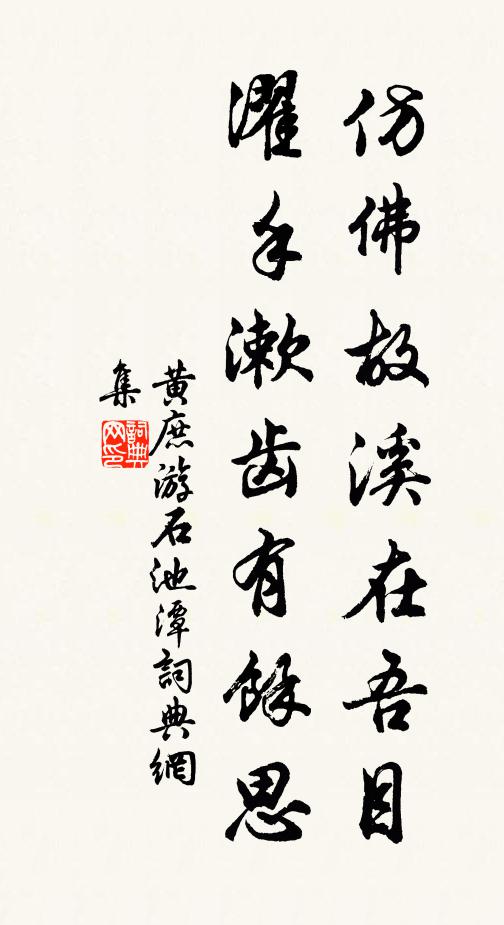 仿佛故溪在吾目
濯手漱齿有餘思
黄庶游石池潭詞典網
集
詞典
网印